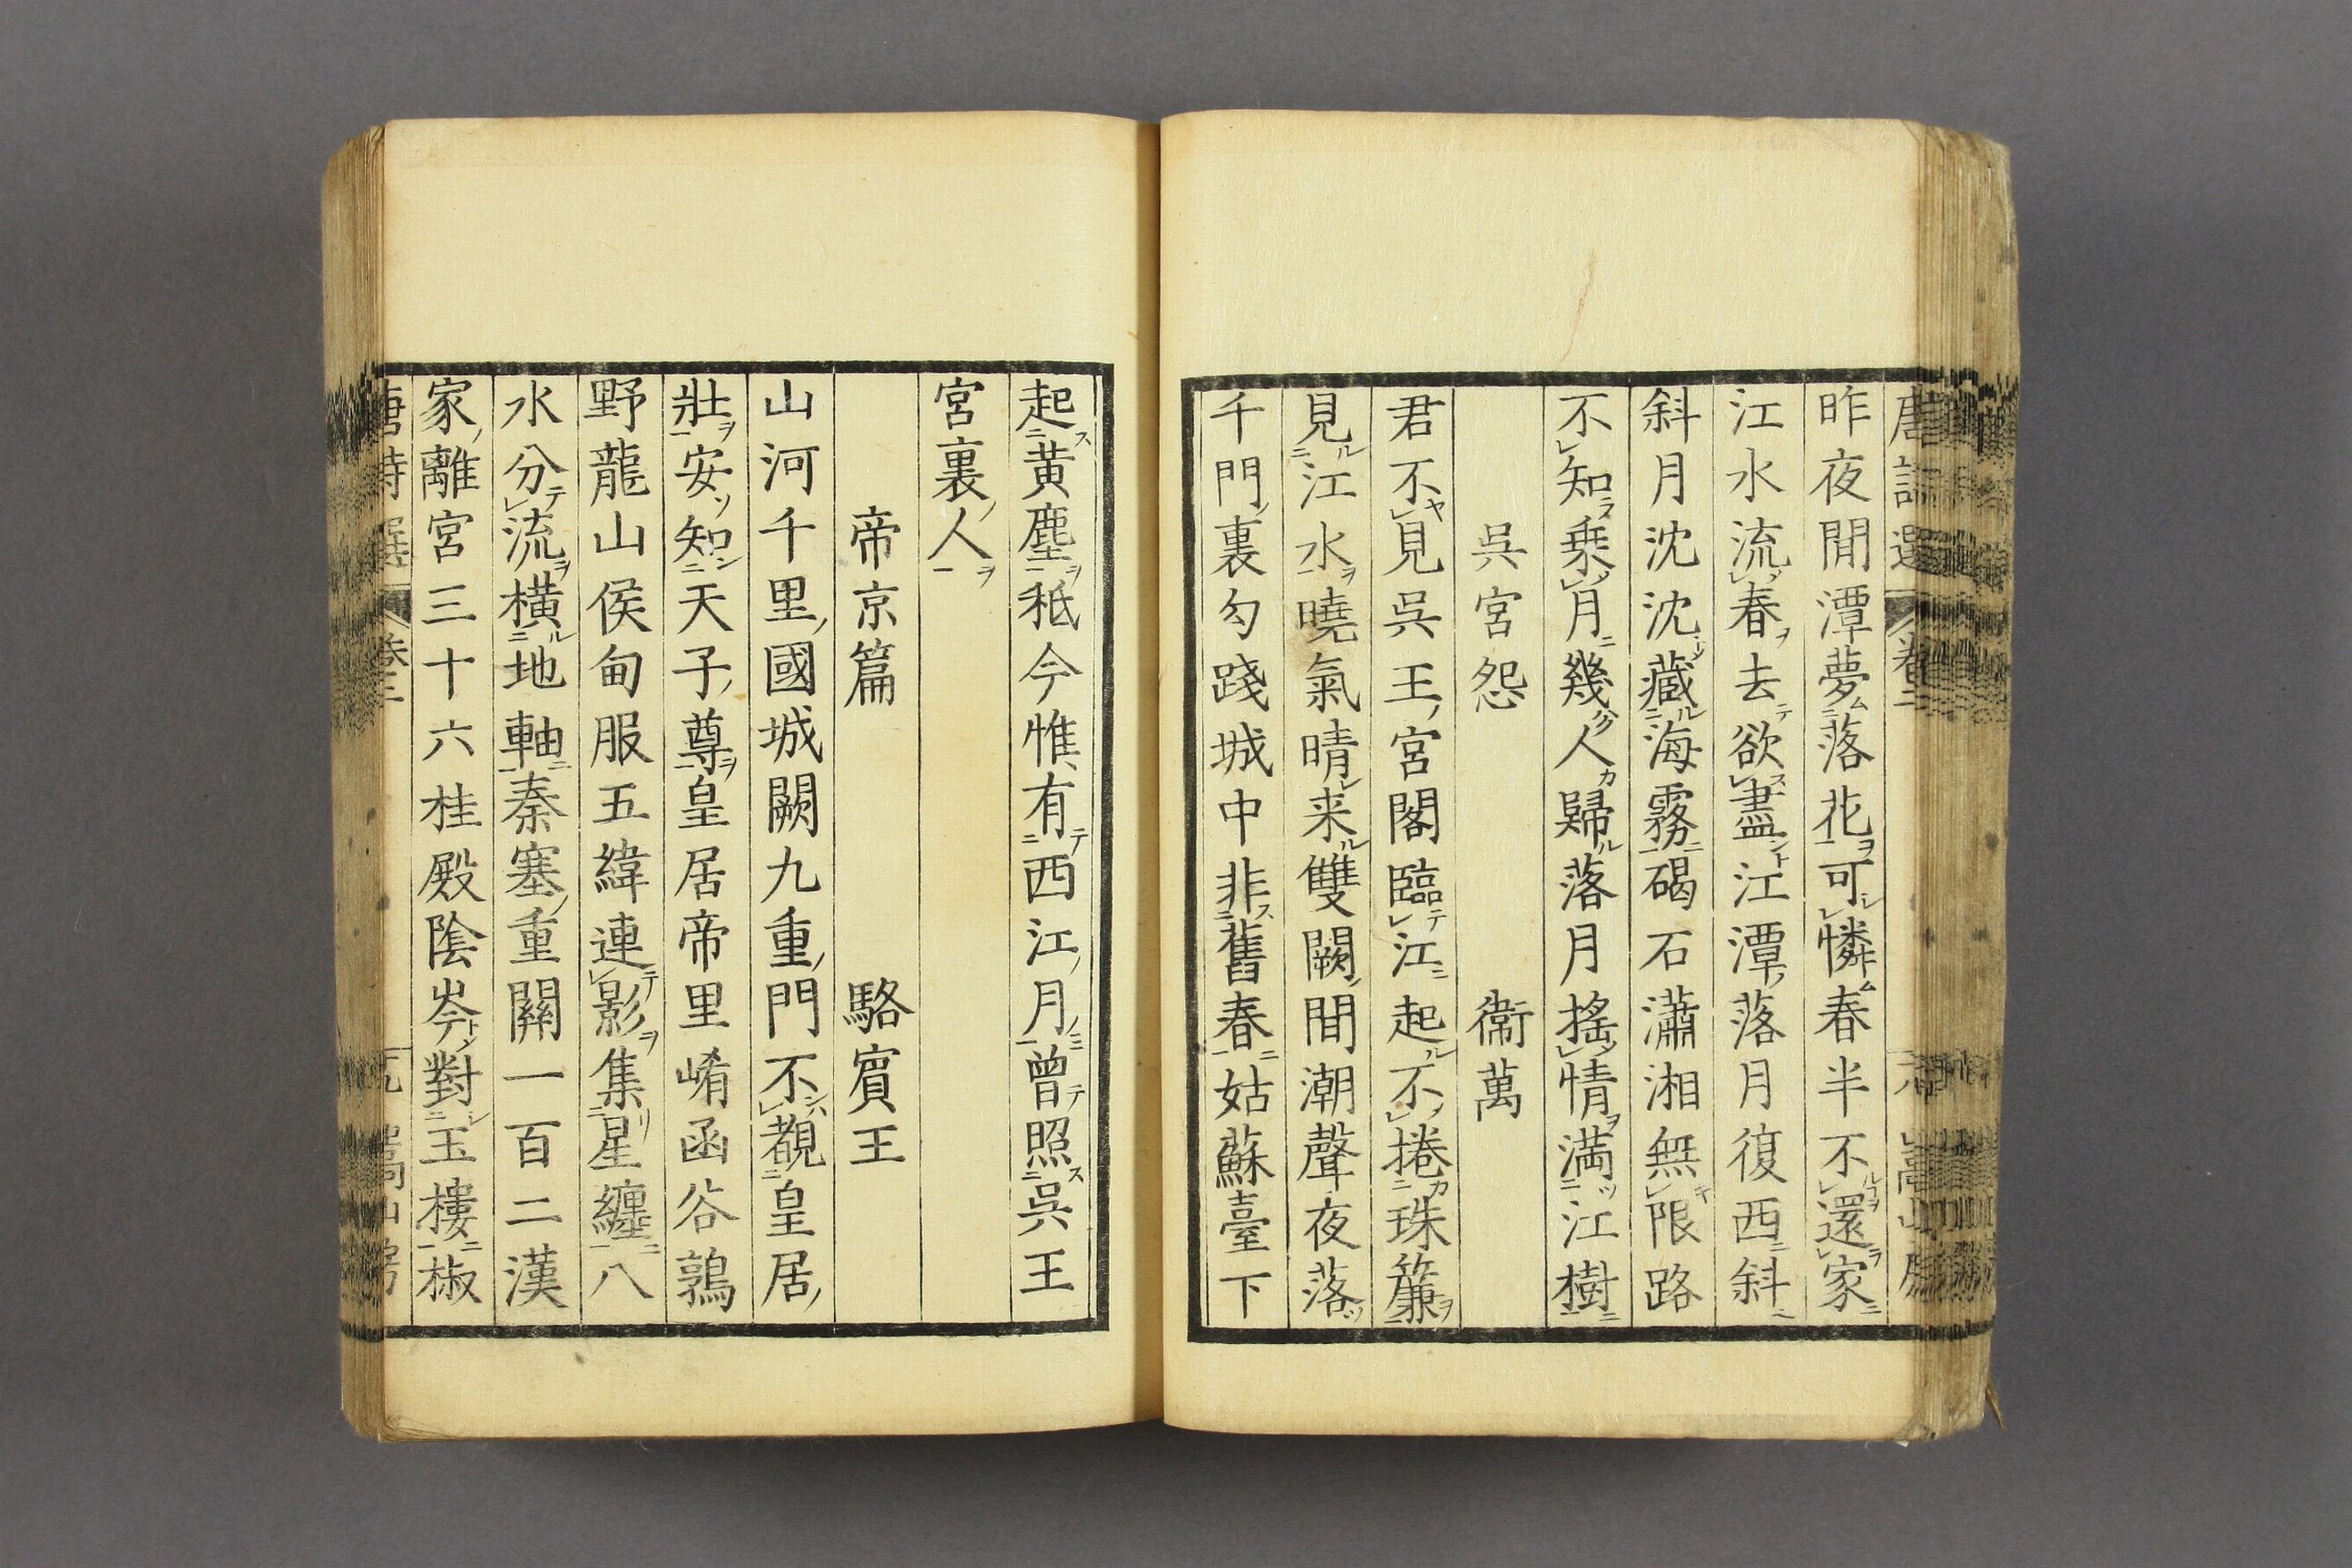 昨夜閒潭夢落花可憐春半不還家
江水流春去欲盡江潭落月復西斜
斜月沈沈藏海霧碣石瀟湘無限路
不知乗月幾人歸落月搖情満江樹
吳宮怨 衞萬
君不見吳王宮閣臨江起不捲珠簾
見江水曉氣晴来雙闕間潮聲夜落
千門裏勾踐城中非舊春姑蘇臺下
起黄塵秪今惟有西江月曾照吳王
宮裏人
帝京篇 駱賓王
山河千里國城闕九重門不覩皇居
壯安知天子尊皇居帝里崤函谷鶉
野龍山侯甸服五緯連影集星纏八
水分流橫地軸秦塞重關一百二漢
家離宮三十六桂殿陰岑對玉樓椒